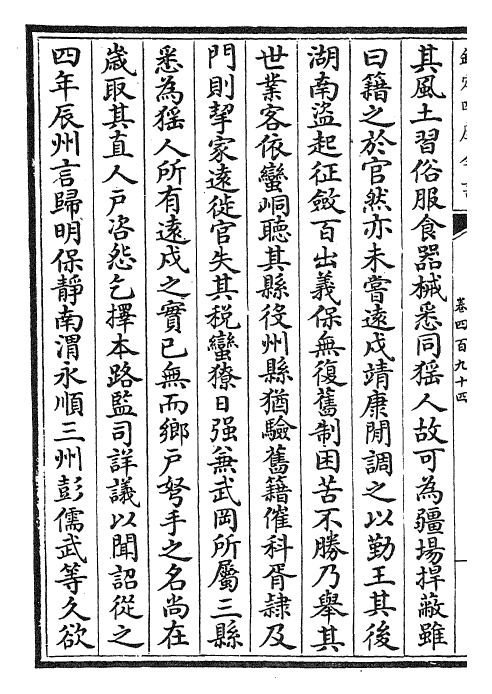 欽定四庫全書
卷四百九十四
其風土習俗服食器械悉同猺人故可為疆場捍蔽雖
曰籍之於官然亦未嘗遠戍靖康閒調之以勤王其後
湖南盜起征斂百出義保無復舊制困苦不勝乃舉其
世業客依蠻峒聽其縣役州縣猶驗舊籍催科胥隸及
門則挈家遠徙官失其稅蠻獠日强兼武岡所屬三縣
悉為猺人所有遠戍之實已無而鄉戶弩手之名尚在
歲取其直人戶咨怨乞擇本路監司詳議以聞詔從之
四年辰州言歸明保靜南渭永順三州彭儒武等久欲